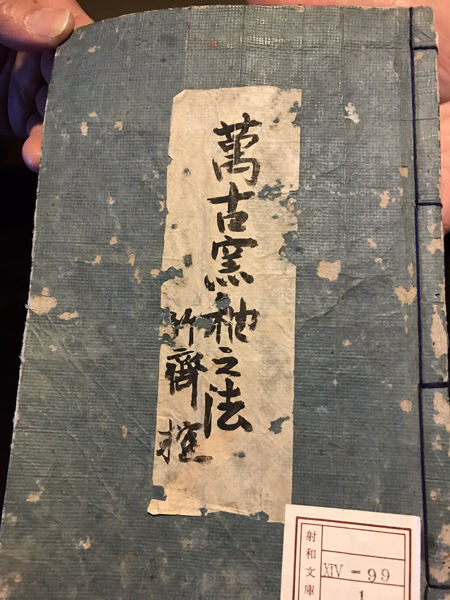 萬古窯釉之法
竹齋控
射和文庫
XIV-99
1